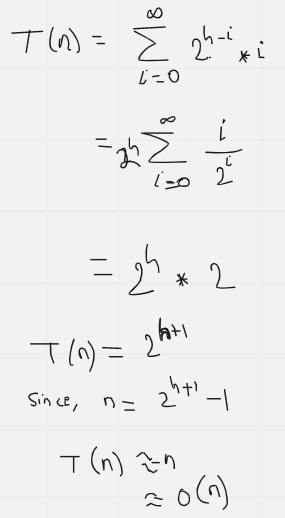 T(n) = ∞ ∑ i=0 2^(h-i) * i
= 2^h ∞ ∑ i=0 i/2^i
= 2^h * 2
T(n) = 2^(h+1)
Since, n = 2^(h+1) - 1
T(n) ≈ n
≈ O(n)